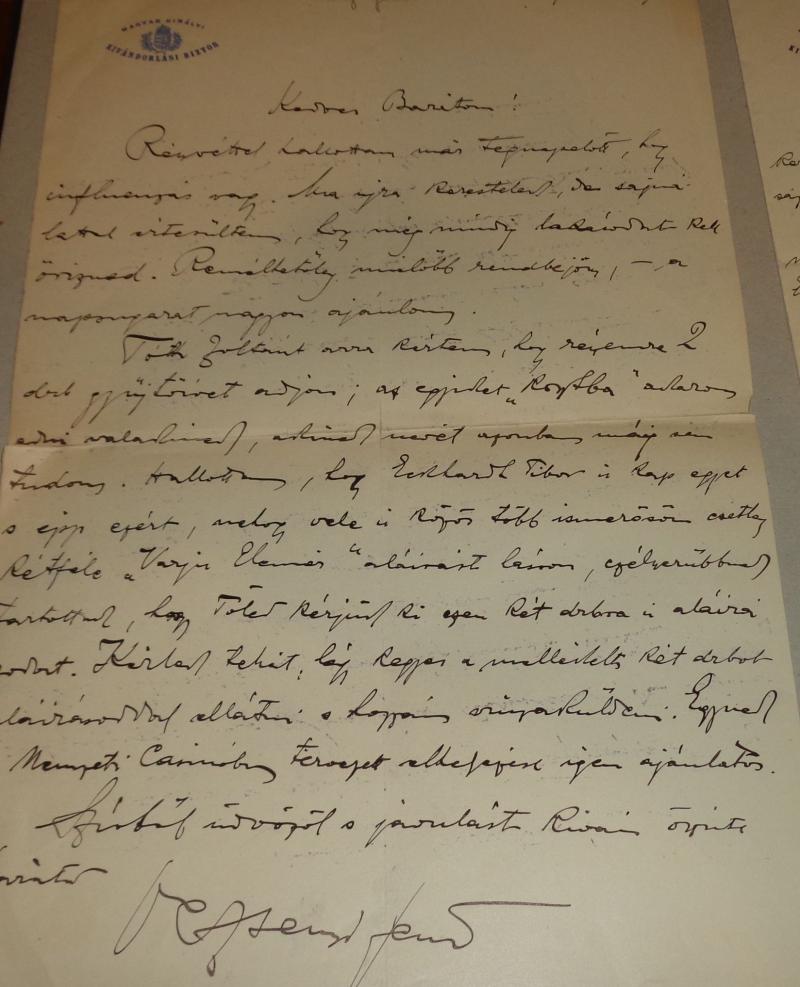 MAGYAR KIRÁLYI
KIVÁNDORLÁSI BIZTOS
Kedves Barátom!
Részvéttel hallottam már tegnapelőtt, hogy
influenzás vagy. Ma ujra kerestelek, de sajná-
lattal értesültem, hogy még mindig lakásodat kell
őrizned. Remélhetőleg mielőbb rendbejösz, – a
napsugarat nagyon ajánlom.
Tóth Zoltánt arra kértem, hogy részemre 2
drb gyüjtőivet adjon; az egyiket „ akarom
adni valakinek, akinek nevét azonban máig sem
tudom. Hallottam, hogy Eckhardt Tibor is kap egyet
s épp ezért, nehogy vele is közös több ismerősöm esetleg
kétféle „Varju Elemér" aláirást lásson, célszerübbnek
tartottuk, hogy Tőled kérjük ki ezen két drbra is aláirá
sodat. Kérlek tehát, légy kegyes a mellékelt két drbot
aláirásoddal ellátni s hozzám visszaküldeni. Egynek
Nemzeti Casinóban tervezett elhelyezése igen ajánlatos.
Szivből üdvözöl s javulást kiván őszinte
barátod
Jenő